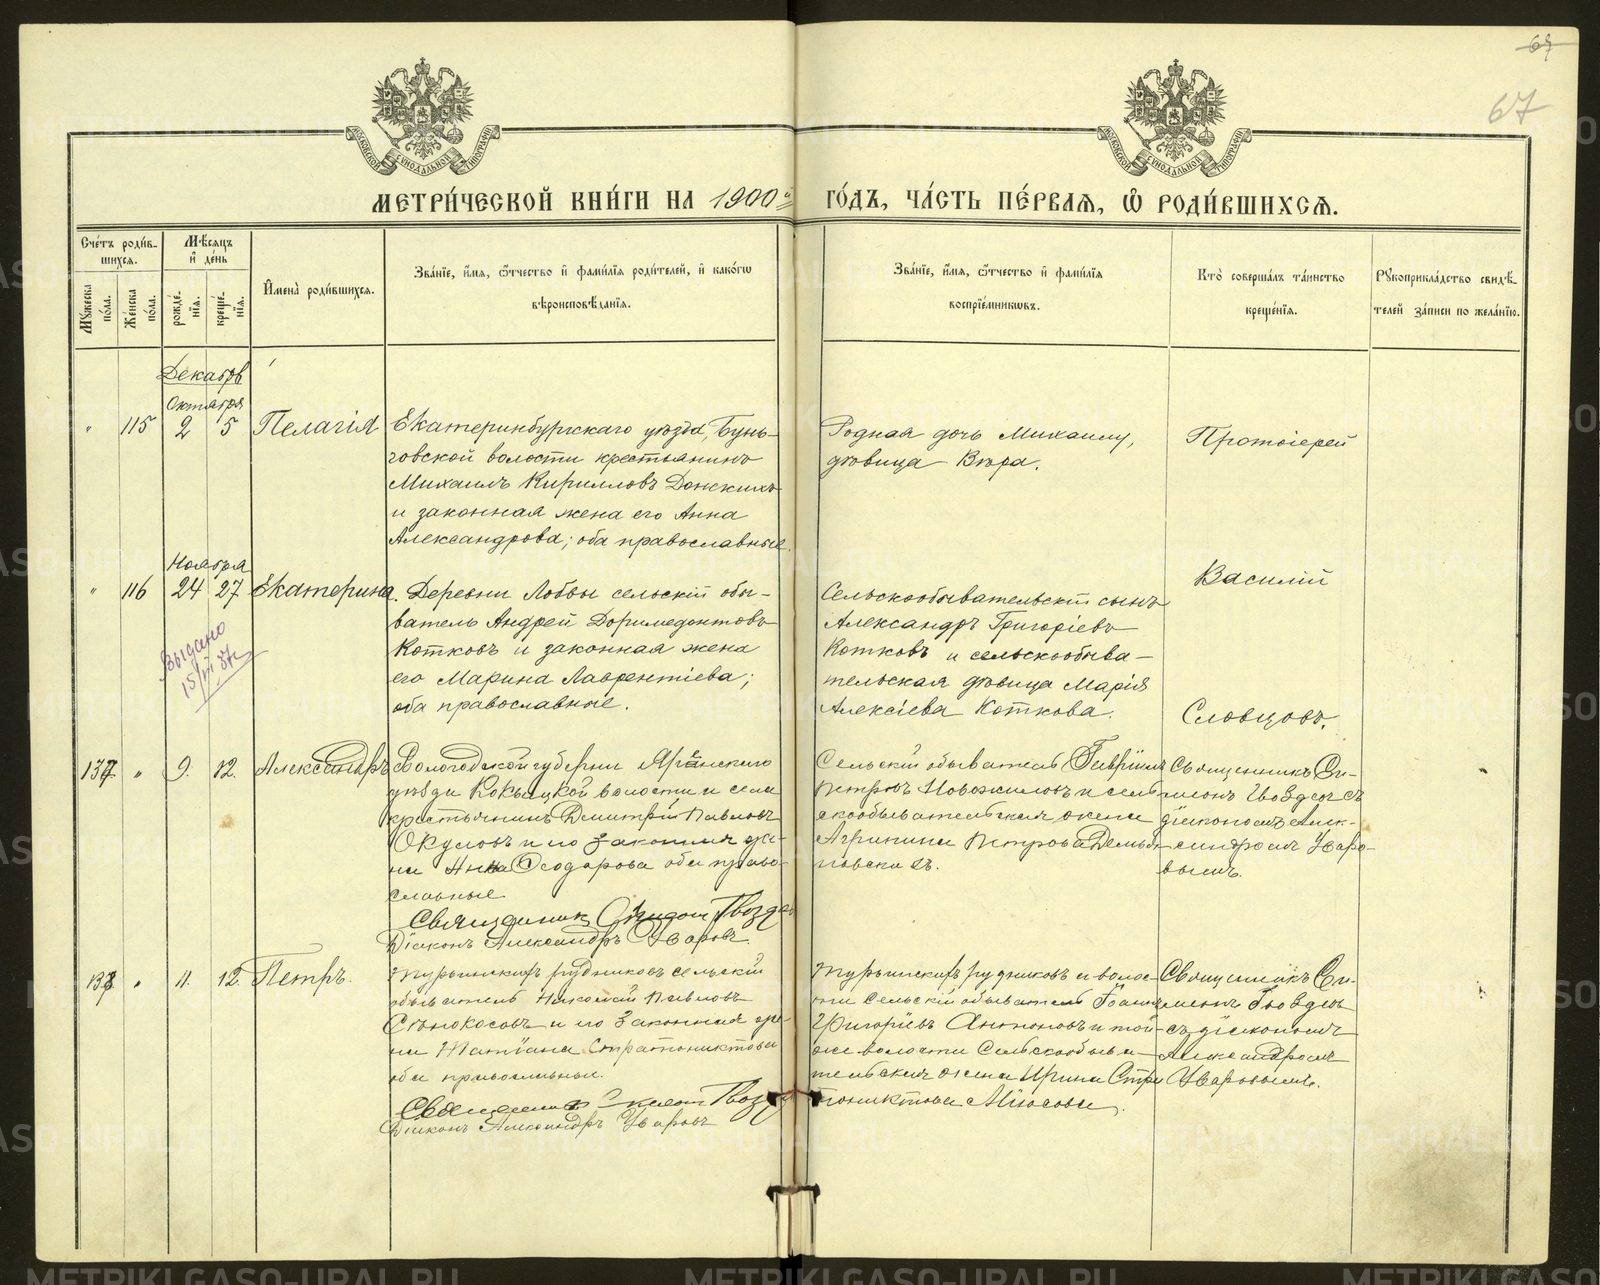 67
МЕТРИ́ЧЕСКОЙ КНИ́ГИ НА 1900й ГО́ДЪ, ЧА́СТЬ ПЕ́РВАЯ, Ѡ РОДИ́ВШИХСЯ.
Сче́тъ роди́вшихся.
Мѣ́сяцъ и҆ де́нь
Мꙋ́жеска по́ла.
Же́нска по́ла.
рожде́нїѧ.
креще́нїѧ.
И҆мена̀ роди́вшихсѧ.
Зва́нїе, и҆́мѧ, ѻ҆́тчество и҆ фами́лїѧ роди́телей, и҆ како́гѡ
вѣроисповѣ́данїѧ.
Зва́нїе, и҆́мѧ, ѻ҆́тчество и҆ фами́лїѧ
воспрїе́мникѡвъ.
Кто̀ соверша́лъ та́инство
креще́нїѧ.
Рꙋкоприкла́дство свидѣ́
телей за́писи по жела́нїю.
Декабрь
Октября
" 115 2 5 Пелагія
Екатеринбургскаго уѣзда, Бунь-
говской волости крестьянинъ
Михаилъ Кирилловъ Донскихъ
и законная жена его Анна
Александрова; оба православные.
Родная дочь Михаилу,
дѣвица Вѣра.
Протоіерей
Ноября
" 116 24 27 Екатерина.
Выдано
Деревни Лобвы сельскій обы-
ватель Андрей Доримедонтовъ
Котковъ и законная жена
его Марина Лаврентіева;
оба православные.
Сельскообывательскій сынъ
Александръ Григоріевъ
Котковъ и сельскообыва-
тельская дѣвица Марія
Алексіева Коткова.
Василій
Словцовъ.
137 " 9. 12. Александръ
Вологодской губерніи Яренскаго
уѣзда волости и села
крестьянинъ Димитрій Павловъ
Окуловъ и его законная же-
на Анна Ѳеодорова оба право-
славные
Священникъ Гвозде
Діаконъ Александръ Уваровъ.
Сельскій обыватель Гавріилъ
Петровъ Новожиловъ и сель
скообывательская жена
Агрипина Петрова
Священникъ Си-
меонъ Гвоздевъ съ
діакономъ Алек-
сандромъ Уваро-
вымъ.
138 " 11. 12. Петръ.
Турьинскихъ рудниковъ сельскій
обыватель Николай Павловъ
Сѣнокосовъ и его законная же-
на Татіана Стратониктова
оба православные.
Священникъ Гвозде
Діаконъ Александръ Уваровъ
Турьинскихъ рудниковъ и волос-
ти Сельскій обыватель Іоаннъ
Григоріевъ Антоновъ и той-
же волости Сельскообыва-
тельская жена Ирина Стра
тониктова
Священникъ Си-
меонъ Гвоздевъ
съ діакономъ
Александромъ
Уваровымъ.
METRIKI.GASO-URAL.RU